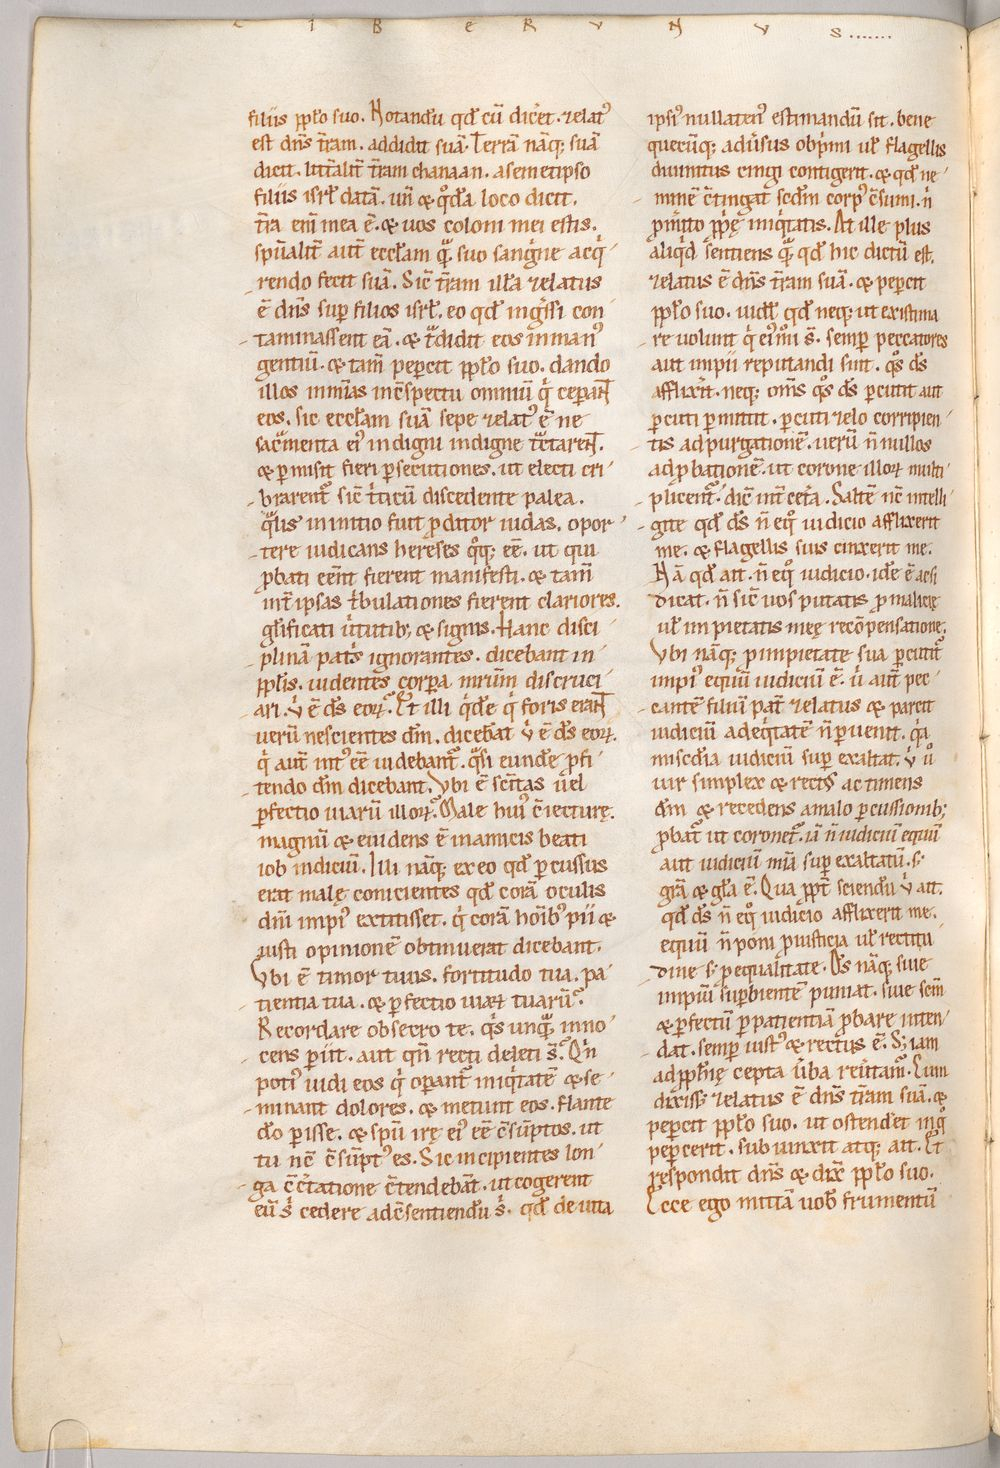 L I B E R V N V S .......
filiis pp̄lo suo. Notandū qd̄ cū dic̄et. zelat᷒
est dn̄s t̄ram. addidit suā. Terrā nāq; suā
dicit. litt̄alit̄ t̄ram chanaan. asemetipso
filiis isrl̄ datā. un̄ & qd̄a loco dicit.
t̄ra eni mea ē. & uos coloni mei estis.
spūalit̄ aut̄ eccl̄am qͣ suo sangine acq
rendo fecit suā. Sic̄ t̄ram ill̄a zelatus
ē dn̄s sup filios isrl̄. eo qd̄ ingssi con
taminassent eā. & tdidit eos in man᷒
gentiū. & tam̄ pepercit pp̄lo suo. dando
illos in mīas inc̄spectu omniū q ceperant
eos. sic eccl̄am suā sepe zelat᷒ ē ne
sacmenta ei᷒ indigni indigne tc̄tarent.
& pmisit fieri psecutiones. ut electi cri
brarent sic̄ t̄ticū discedente palea.
qlis in initio fuit pditor iudas. opor
tere iudicans hereses qq; ēē. ut qui
pbati eēnt fierent manifesti. & tam̄
int̄ ipsas t̄bulationes fierent clariores.
gl̄ificati ūtutib; & signis. Hanc disci
plinā pats ignorantes. dicebant in
pp̄lis. uidentes corpa nr̄um discruci
ari. v ē ds̄ eoꝝ. Et illi qd̄e q foris erant
uerū nescientes dm̄. diceb̄at v ē ds̄ eoꝝ.
q aut̄ int᷒ ēē uidebant. qsi eunde pfi
tendo dm̄ dicebant. Vbi ē sc̄itas ūel
pfectio uiarū illoꝝ. Male hui᷒ c̄iecturę.
magnū & euidens ē in amicis beati
iob indiciū. Illi nāq; ex eo qd̄ percussus
erat malę conicientes qd̄ corā oculis
dni impi᷒ extitisset. q corā hoib᷒ pii &
iusti opinionē obtinuerat dicebant.
Vbi ē timor tuus. fortitudo tua. pa
tientia tua. & pfectio uiaꝝ tuarū.
Recordare obsecro te. qs unq inno
cens piit. aut qn̄ recti deleti s̄. Qn
poti᷒ uidi eos q opant iniqtatē & se
minant dolores. & metunt eos. flante
dō pisse. & spū irę ei᷒ ēē c̄sūptos. ut
tu nc̄ c̄sūpt᷒ es. Sic incipientes lon
ga c̄ctatione c̄tendebāt. ut cogerent
eū s cedere adc̄sentiendū s. qd̄ de uita
ipsi᷒ nullaten᷒ estimandū sit. bene
quecūq; adūsus obpmi ul̄ flagellis
diuinitus cingi contigerit. & qd̄ ne
minē c̄tingat scdm̄ corp᷒ c̄sumi. n
pmitto ppę iniqtatis. At ille plus
aliqd sentiens q qd̄ hic dictū est.
zelatus ē dn̄s t̄ram suā. & pepercit
pp̄lo suo. uidit qd̄ neq; ut existima
re uolunt q ei᷒mōi s̄. semp peccatores
aut impii reputandi sunt. qs ds̄
afflixit. neq; oms̄ qs ds̄ pcutit aut
pcuti pmittit. pcuti zelo corripien
tis ad purgationē. uerū n̄ nullos
ad pbationē. ut corone illoꝝ multi
plicent. dic̄ int̄ cetera. Saltē nc̄ intelli
gite qd̄ ds̄ n̄ eq iudicio afflixerit
me. & flagellis suis cinxerit me.
Nā qd̄ ait. n̄ eq iudicio. idē ē acsi
dicat. n̄ sic̄ uos putatis p malicię
ul̄ impietatis meę recōpensatione.
Vbi nāq; p impietate sua pcutit
impi᷒ equū iudiciū ē. ū aut̄ pec
cantē filiū pat̄ zelatus & parcit
iudiciū ad eqtatē n̄ puenit. qa
misc̄dia iudiciū sup exaltat. v ū
uir simplex & rect᷒ ac timens
dm̄ & recedens a malo pcussionib;
pbat ut coronet. iā n̄ iudiciū equū
aut iudiciū mīa sup exaltatū. s;
grā & gl̄a ē. Qua ppt̄ sciendū v ait.
qd̄ ds̄ n̄ eq iudicio afflixerit me.
equū n̄ poni p iusticia ul̄ rectitu
dine s; p equalitate. Ds̄ nāq; siue
impiū supbientē puniat. siue scm̄
& pfectū p patientiā pbare inten
dat. semp iust᷒ & rectus ē. S; iam
ad pp̄hię cepta ūba reūtam. Cum
dixiss; zelatus ē dn̄s t̄ram suā. &
pepercit pp̄lo suo. ut ostendet in q
pepercerit. subiunxit atq; ait. Et
respondit dn̄s & dix̄ pp̄lo suo.
Ecce ego mittā uob̄ frumentū